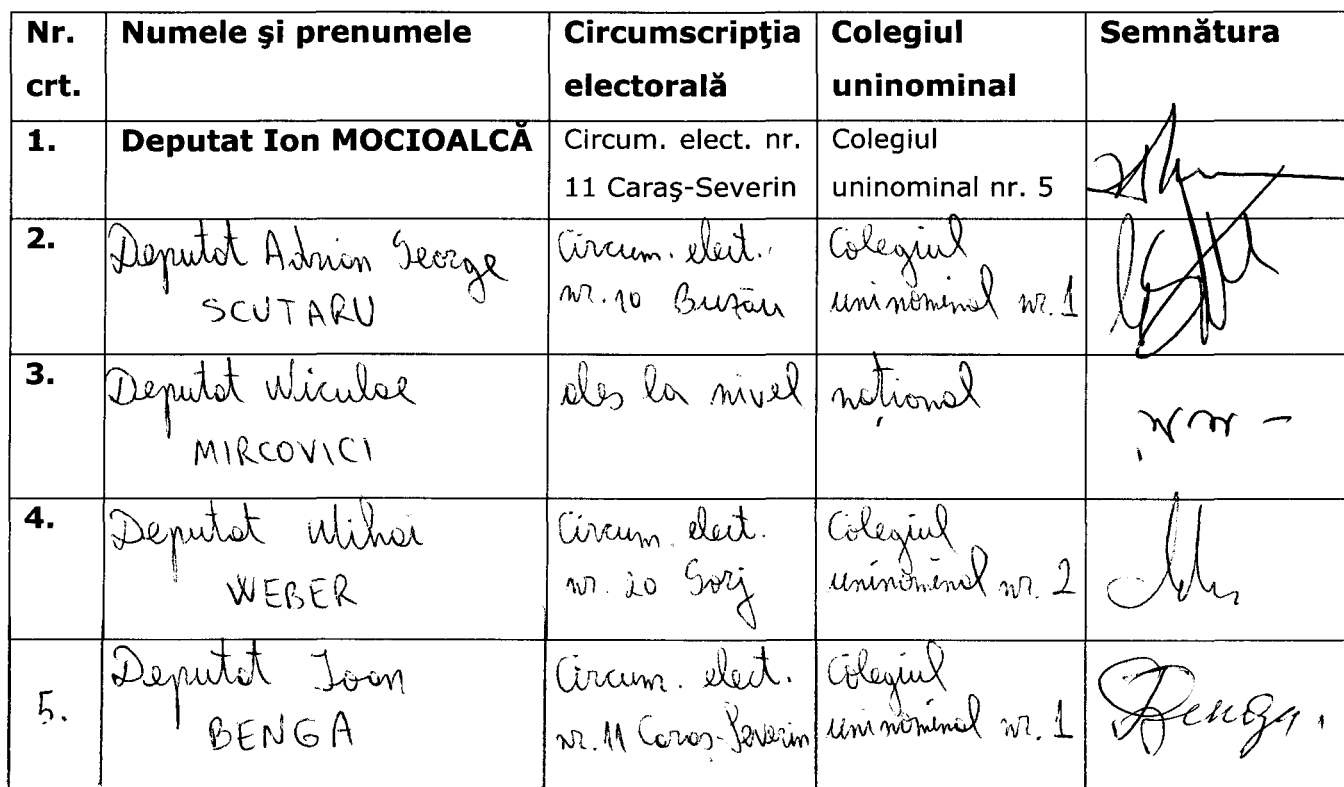 Nr. crt. Numele şi prenumele Circumscripţia electorală Colegiul uninominal Semnătura
1. Deputat Ion MOCIOALCĂ Circum. elect. nr. 11 Caraş-Severin Colegiul uninominal nr. 5
2. Deputat Adrian George SCUTARU Circum. elect. nr. 10 Buzău Colegiul uninominal nr. 1
3. Deputat Niculae MIRCOVICI ales la nivel național
4. Deputat Mihai WEBER Circum. elect. nr. 20 Gorj Colegiul uninominal nr. 2
5. Deputat Ioan BENGA Circum. elect. nr. 11 Caraș-Severin Colegiul uninominal nr. 1 Benga.